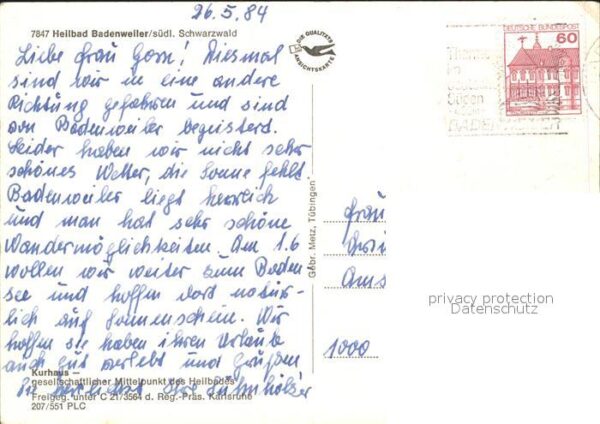 26.5.84
7847 Heilbad Badenweiler/südl. Schwarzwald
Liebe Frau Gorn! Diesmal
sind wir in eine andere
Richtung gefahren und sind
von Badenweiler begeistert.
Leider haben wir nicht sehr
schönes Wetter, die Sonne fehlt.
Badenweiler liegt herrlich
und man hat sehr schöne
Wandermöglichkeiten. Am 1.6
wollen wir weiter zum Boden-
see und hoffen dort natür-
lich auf Sonnenschein. Wir
hoffen sie haben ihren Urlaub
auch gut verlebt und grüßen
Sie herzlichst Ihre
Kurhaus –
gesellschaftlicher Mittelpunkt des Heilbades
Freigeg. unter C 21/3564 d. Reg.-Präs. Karlsruhe
207/551 PLC
DIE QUALITÄTS
ANSICHTSKARTE
Gebr. Metz, Tübingen
DEUTSCHE BUNDESPOST
60
BADENWEILER
Frau
1000
privacy protection
Datenschutz